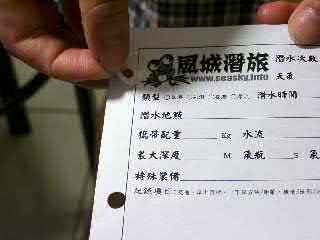 恩城潛旅 潛水次數
www.seasky.info 天氣
類型 潛水時間
潛水地點
攜帶配重 Kg 水流
最大深度 M 氣瓶 S 氣
特殊裝備